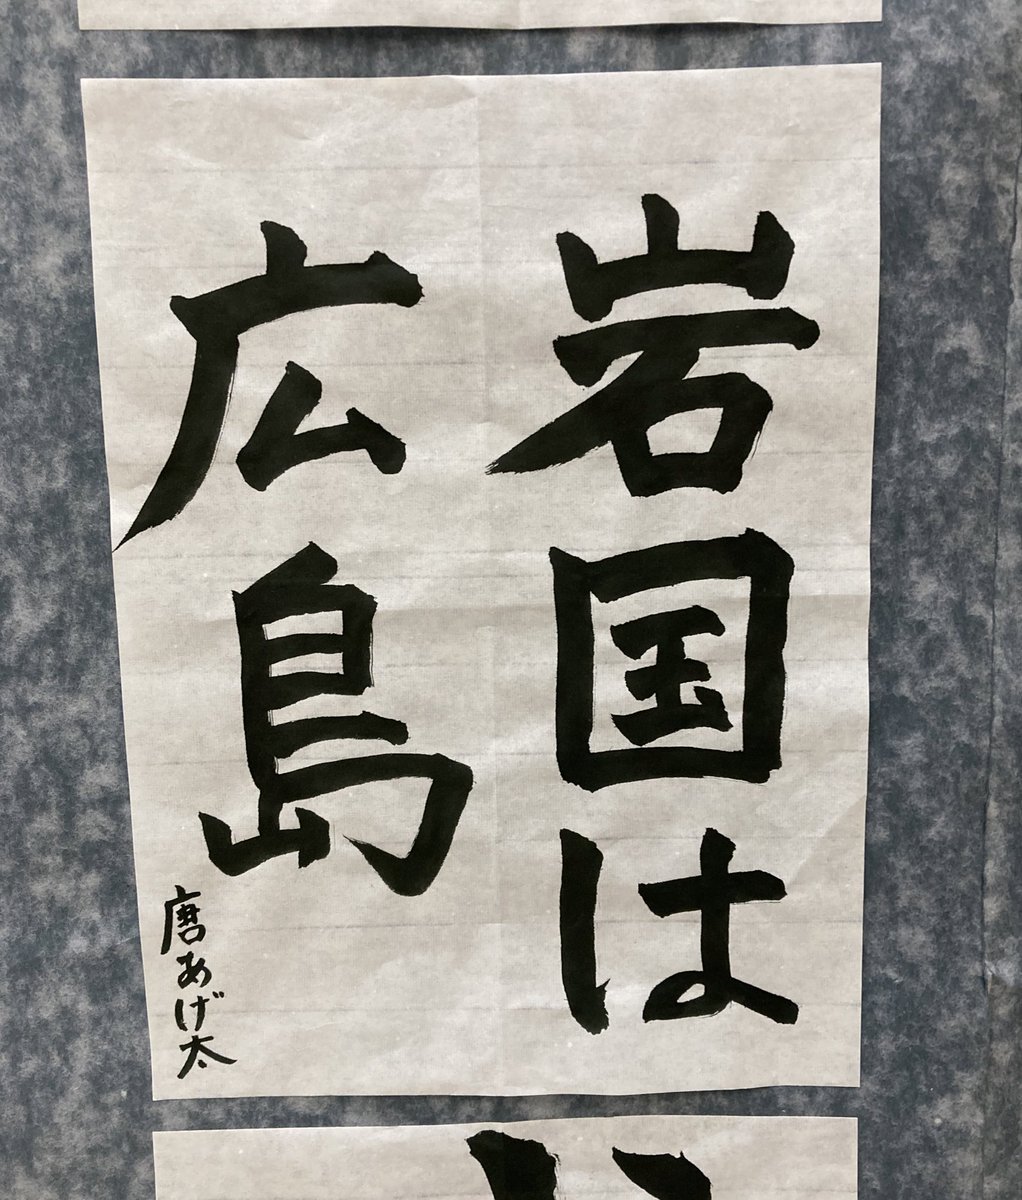 岩国は
広島
唐あげ太